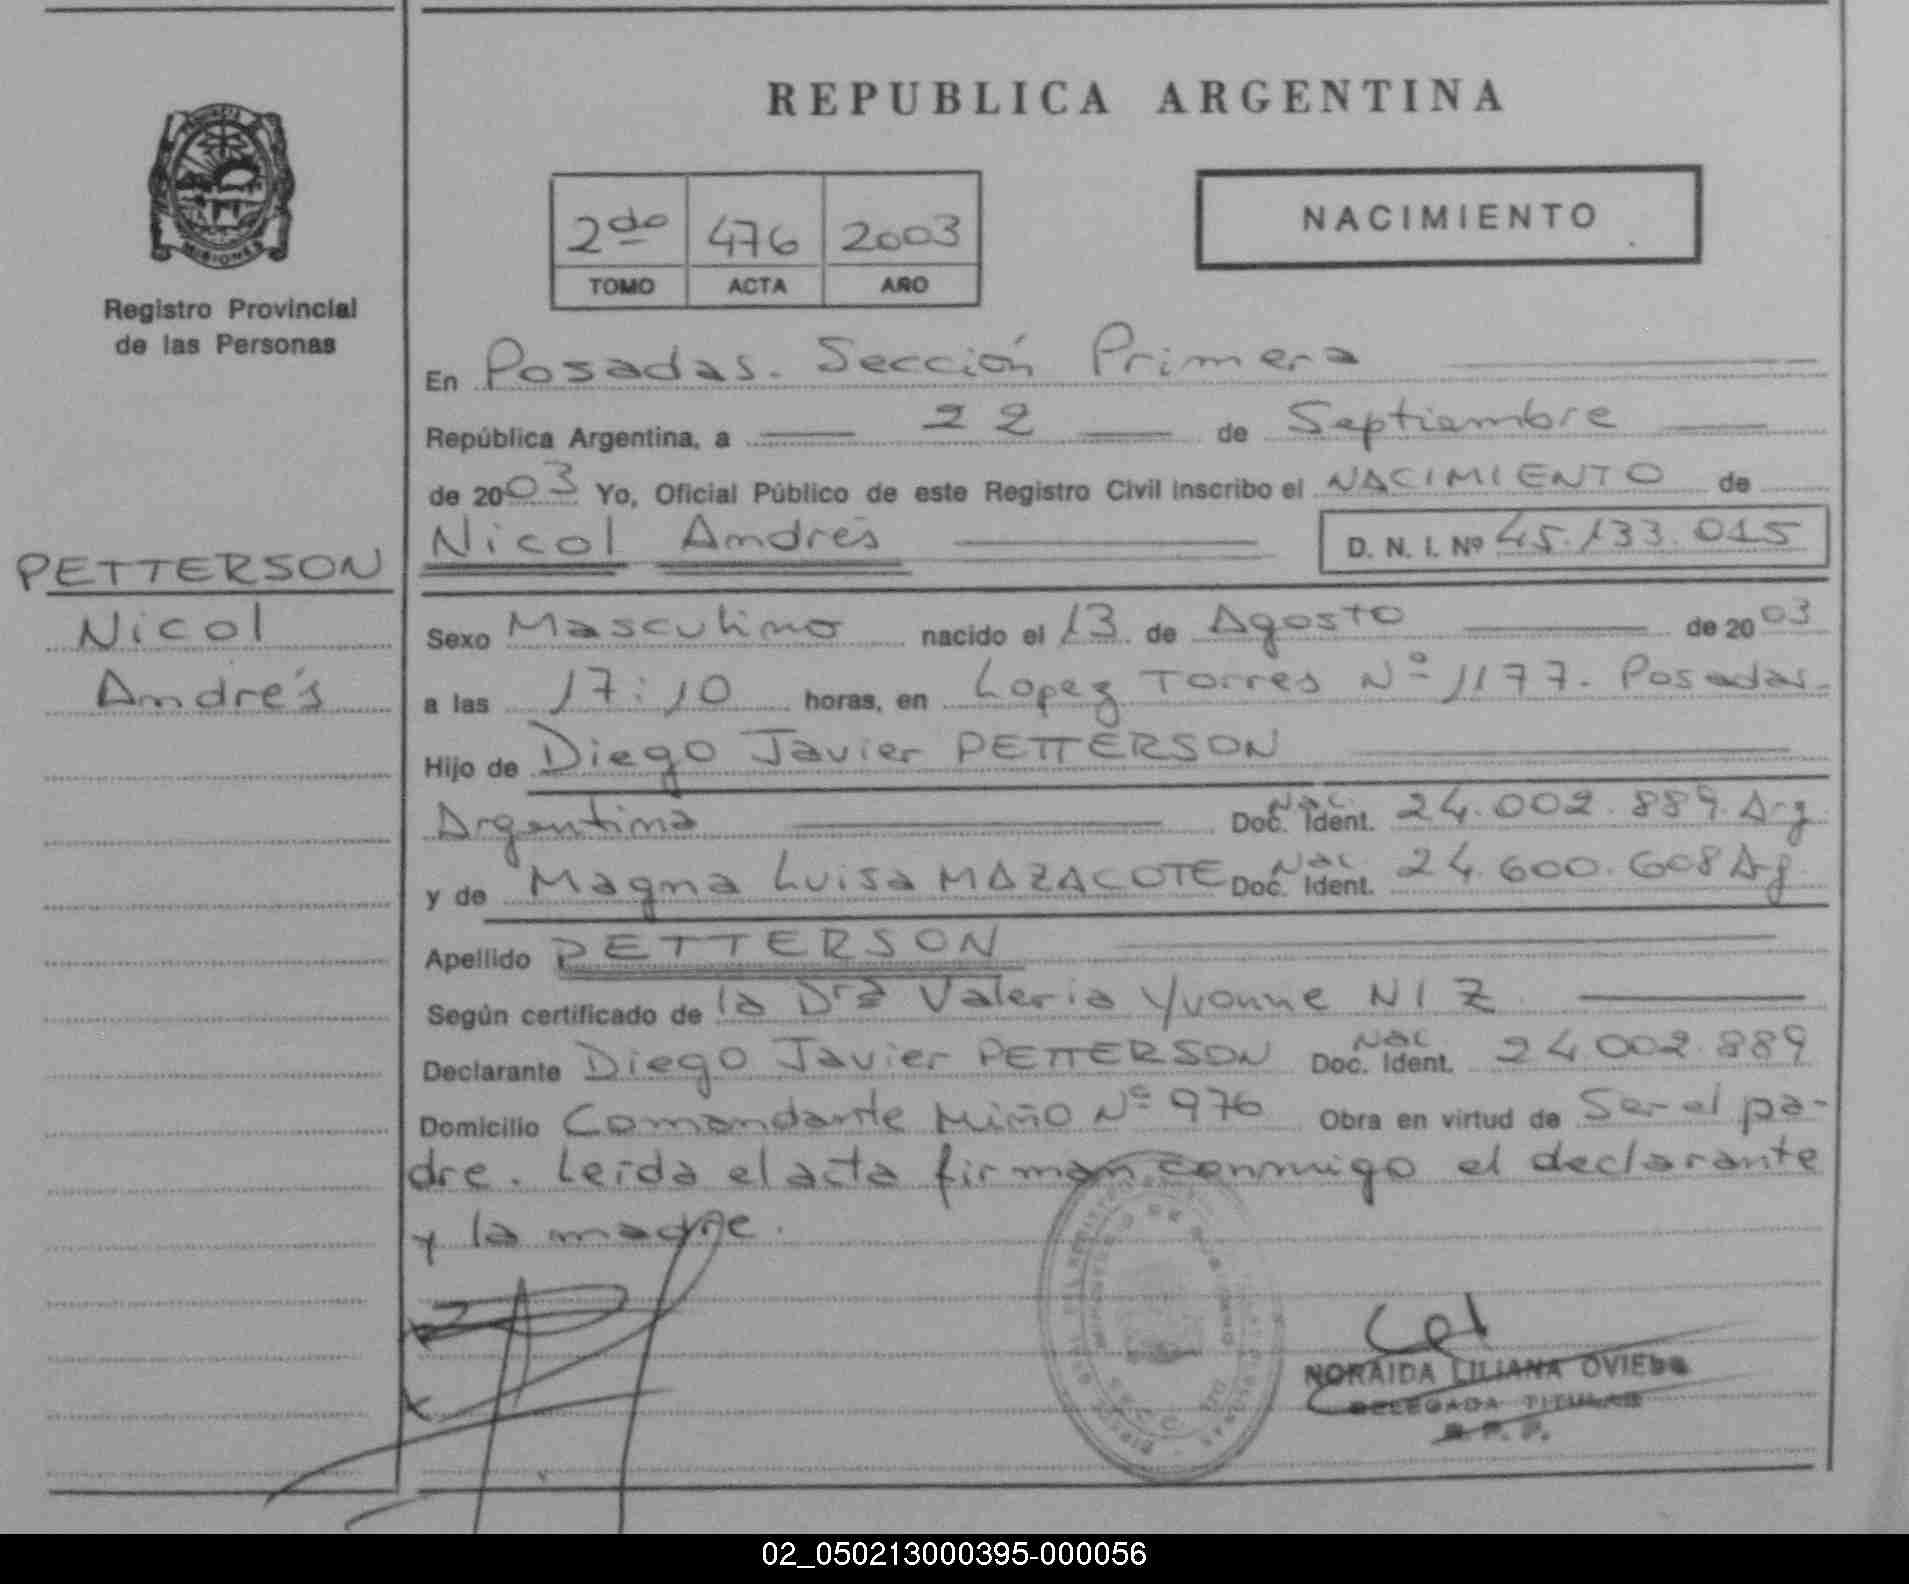 REPUBLICA ARGENTINA
MISIONES
Registro Provincial
de las Personas
2do 476 2003
TOMO ACTA AÑO
NACIMIENTO
En Posadas. Sección Primera
República Argentina, a 22 de Septiembre
de 2003 Yo, Oficial Público de este Registro Civil inscribo el NACIMIENTO de
Nicol Andrés D. N. I. Nº 45.133.015
PETTERSON
Nicol
Andrés
Sexo Masculino nacido el 13 de Agosto de 2003
a las 17:10 horas, en Lopez Torres Nº 1177. Posadas.
Hijo de Diego Javier PETTERSON
Argentina Nac. Doc. Ident. 24.002.889. Arg.
y de Magna Luisa MAZACOTE Nac Doc. Ident. 24.600.608 Arg
Apellido PETTERSON
Según certificado de la Dra Valeria Yvonne NIZ
Declarante Diego Javier PETTERSON Nac Doc. Ident. 24.002.889
Domicilio Comandante Miño Nº 976 Obra en virtud de Ser el pa-
dre. Leída el acta firman conmigo el declarante
y la madre.
NORAIDA LILIANA OVIEDO
DELEGADA TITULAR
R. P. P.
02_050213000395-000056